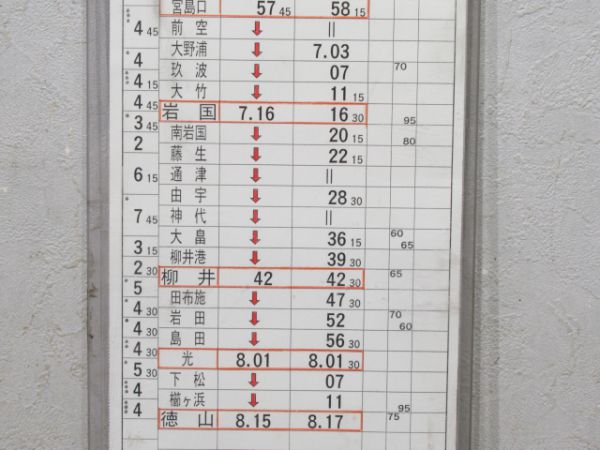 宮島口 57 45 58 15
4 45 前空 ↓ ||
4 大野浦 ↓ 7.03
4 15 玖波 ↓ 07 70
4 45 大竹 ↓ 11 15
岩国 7.16 16 30 95
3 45 南岩国 ↓ 20 15 80
2 藤生 ↓ 22 15
6 15 通津 ↓ ||
由宇 ↓ 28 30
7 45 神代 ↓ ||
大畠 ↓ 36 15 60 65
3 15 柳井港 ↓ 39 30
2 30 柳井 42 42 30 65
5 田布施 ↓ 47 30
4 30 岩田 ↓ 52 70 60
4 30 島田 ↓ 56 30
4 30 光 8.01 8.01 30
5 30 下松 ↓ 07
4 櫛ヶ浜 ↓ 11 95
4 徳山 8.15 8.17 75